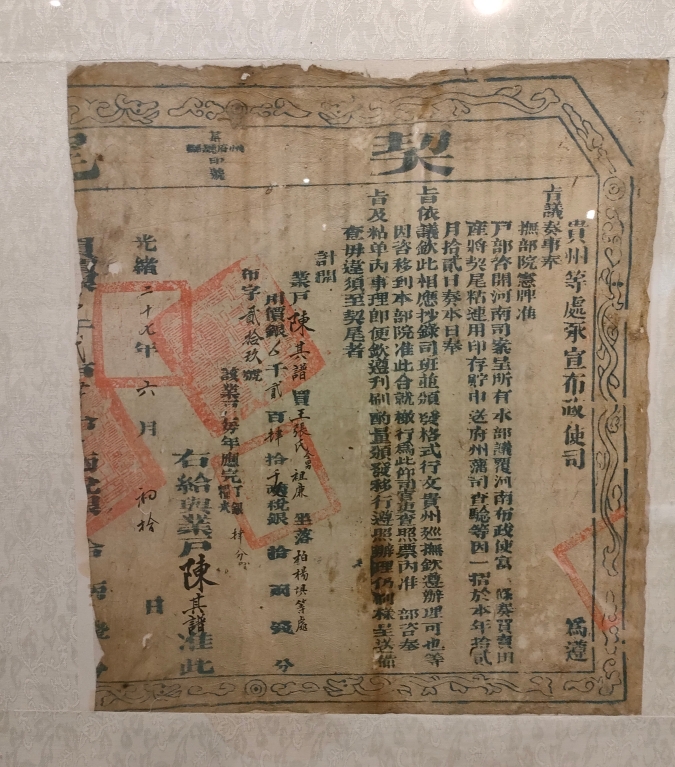 契
貴州等處承宣布政使司 為遵
旨議奏事奉
撫部院憲牌准
戶部咨開河南司案呈所有本部議覆河南布政使富 條奏買賣田
產將契尾粘連用印存貯申送府州藩司查驗等因一摺於本年拾貳
月拾貳日奏本日奉
旨依議欽此相應抄錄司班並頒發格式行文貴州巡撫欽遵辦理可也等
因咨移到本部院准此合就檄行為此仰司官吏查照票內准 部咨奉
旨及粘单內事理即便欽遵刋刷酌量頒發移行遵照辦理仍制樣呈送備
查毋違須至契尾者
計開
業戶陳其譜買王張氏 祖廉 坐落柏楊埧等處
用價銀 千貳百肆拾 稅銀拾 兩 分
布字貳拾玖號
該業 每年應完丁銀 肆分
右給與業戶陳其譜准此
光緒二十七年六月初拾日